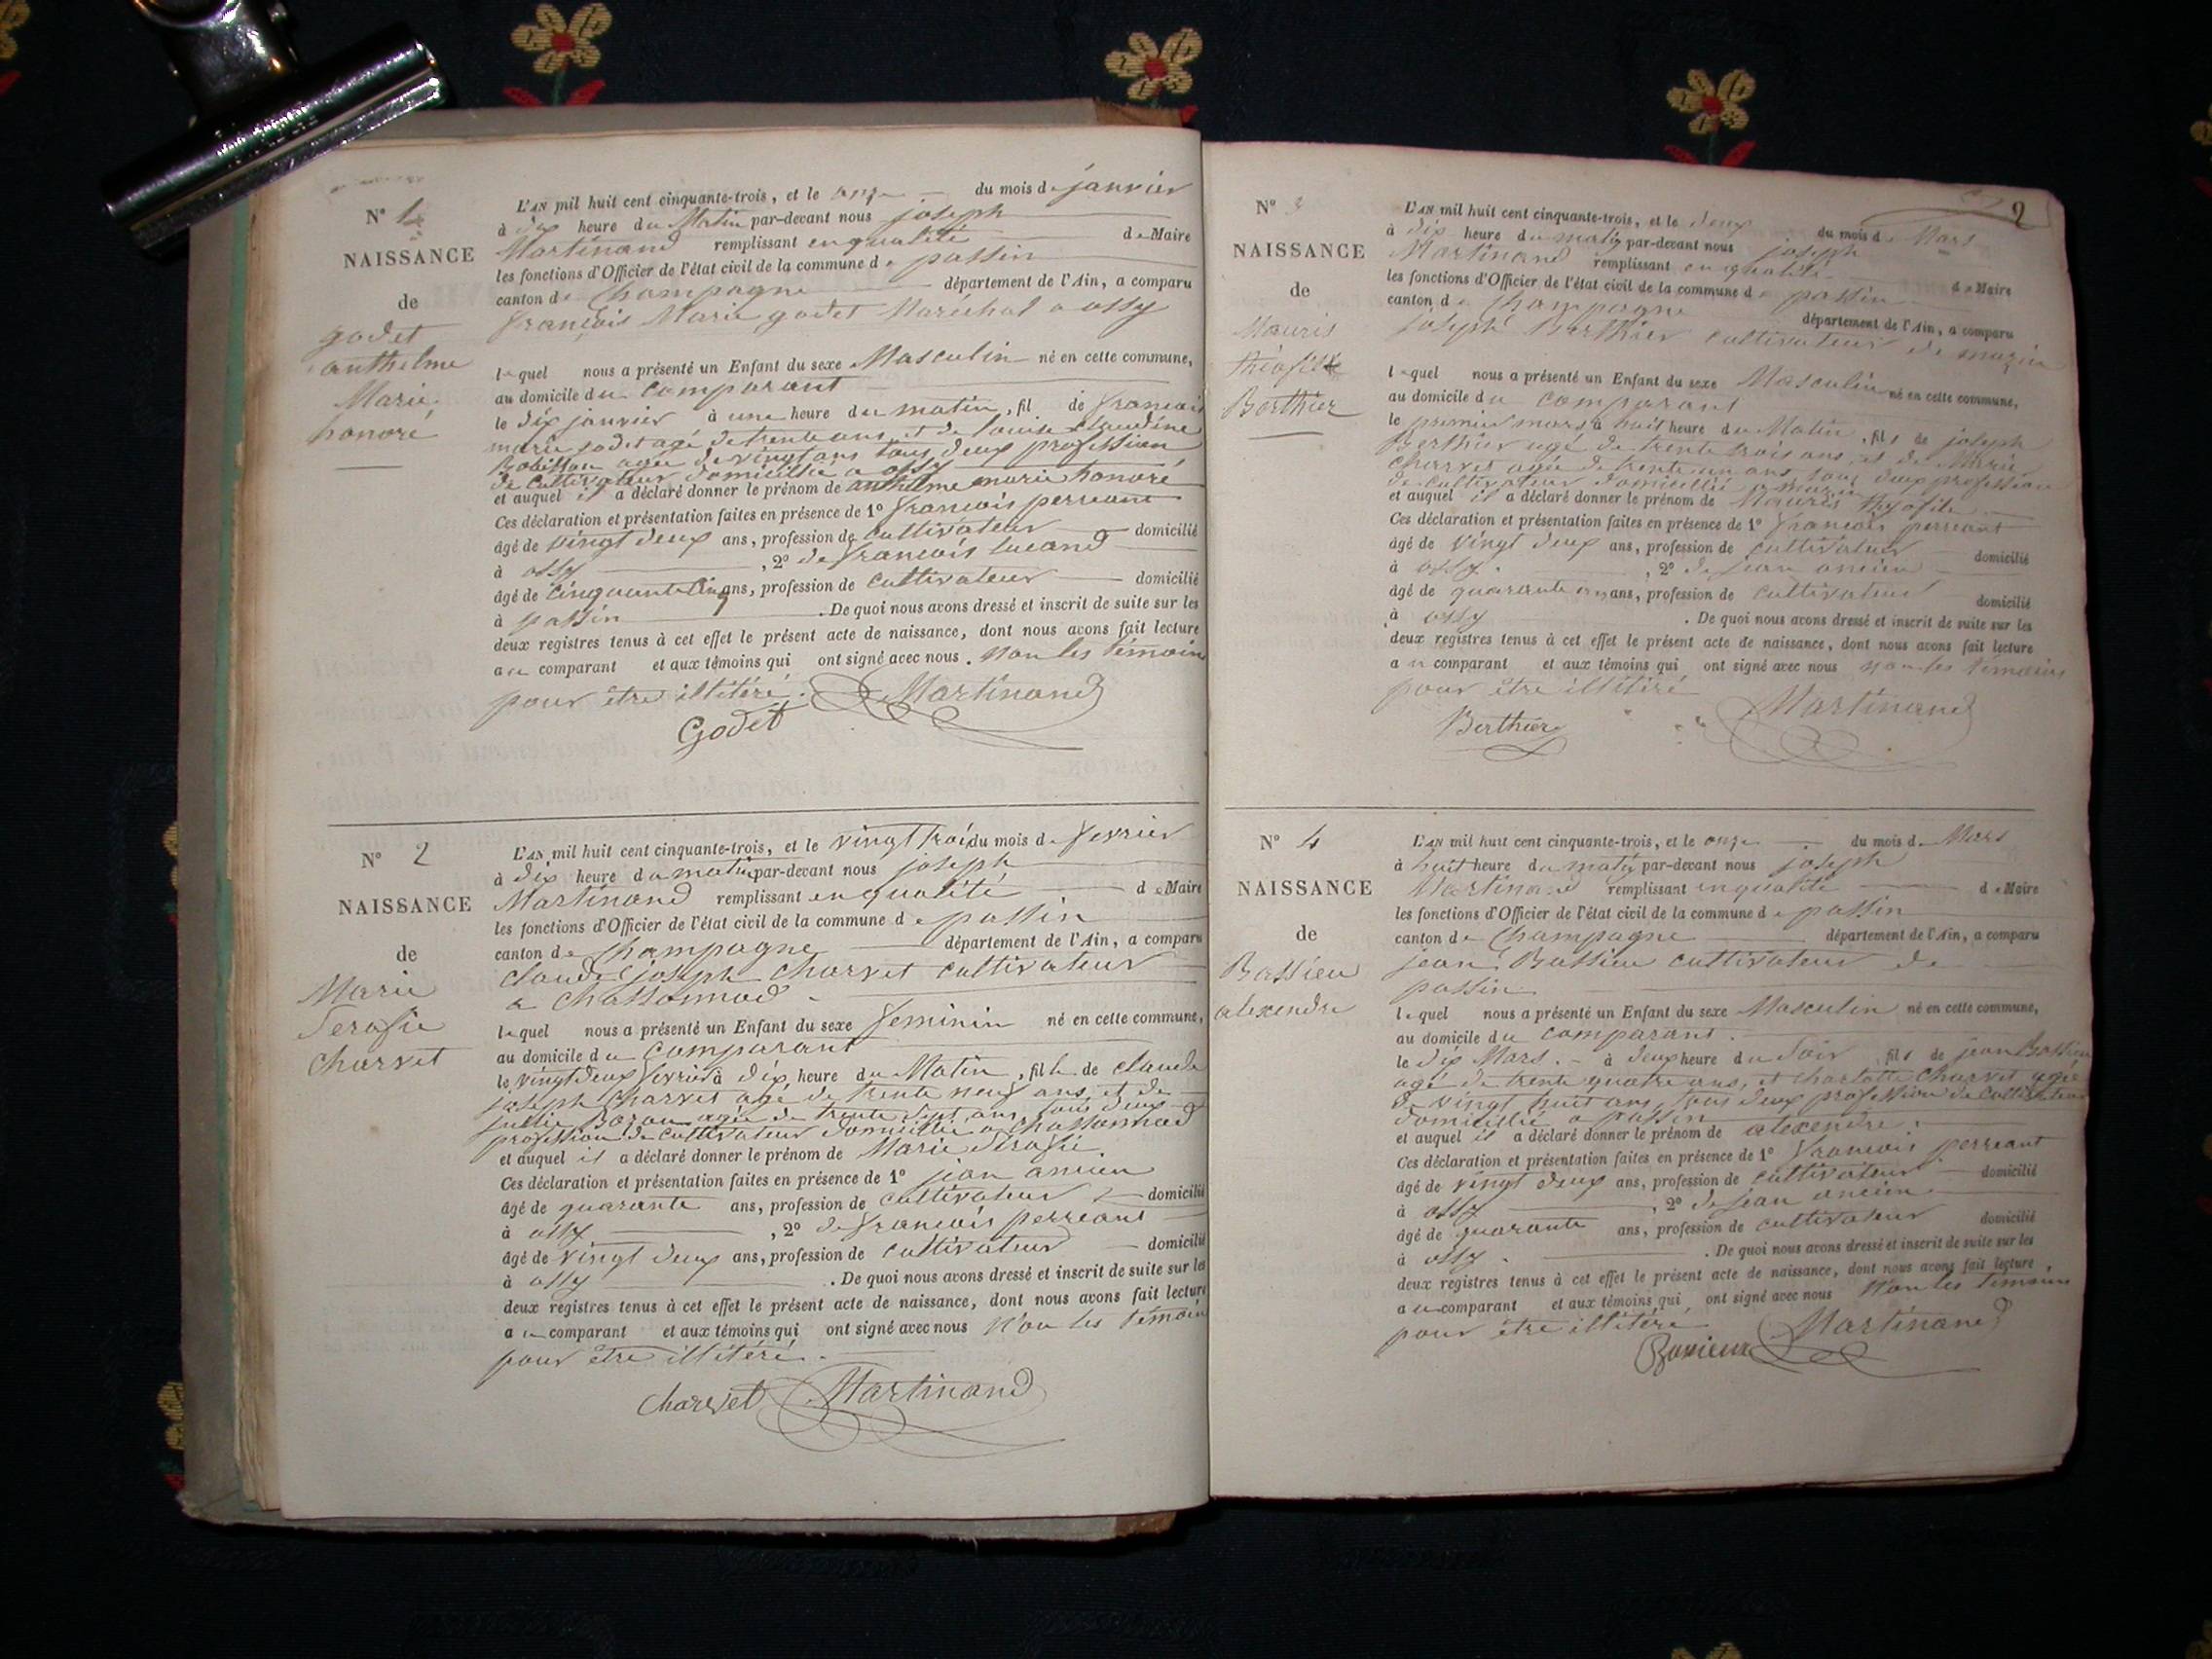 N° 1
NAISSANCE
de
godet
anthelme
Marie
honoré
L'AN mil huit cent cinquante-trois, et le onze du mois de janvier
à dix heure du Matin par-devant nous joseph
Martinand remplissant en qualité de Maire
les fonctions d'Officier de l'état civil de la commune de passin
canton de Champagne département de l'Ain, a comparu
françois Marie godet Maréchal a ossy
lequel nous a présenté un Enfant du sexe Masculin né en cette commune,
au domicile du comparant
le dix janvier à une heure du matin, fil de francois
marie godet agé de trente ans et de louise claudine
agée de vingt ans tous deux profession
de cultivateur domicillié a ossy
et auquel il a déclaré donner le prénom de anthelme marie honoré
Ces déclaration et présentation faites en présence de 1° francois perreant
âgé de vingt deux ans, profession de cultivateur domicilié
à ossy , 2° de francois lucand
âgé de cinquante cinq ans, profession de cultivateur domicilié
à passin . De quoi nous avons dressé et inscrit de suite sur les
deux registres tenus à cet effet le présent acte de naissance, dont nous avons fait lecture
au comparant et aux témoins qui ont signé avec nous. Non les témoin
pour être illitéré.
Martinand
Godet
N° 2
NAISSANCE
de
Marie
Serafie
Charvet
L'AN mil huit cent cinquante-trois, et le vingt trois du mois de fevrier
à dix heure du matin par-devant nous joseph
Martinand remplissant en qualité de Maire
les fonctions d'Officier de l'état civil de la commune de passin
canton de Champagne département de l'Ain, a comparu
claude joseph Charvet cultivateur
a Chassonnod
lequel nous a présenté un Enfant du sexe feminin né en cette commune,
au domicile du comparant
le vingt deux fevrier à dix heure du Matin, fille de claude
joseph Charvet agé de trente neuf ans, et de
jullie agée de trente sept ans, tous deux
profession de cultivateur domicillié a Chassonnod
et auquel il a déclaré donner le prénom de Marie Serafie.
Ces déclaration et présentation faites en présence de 1° jean ancien
âgé de quarante ans, profession de cultivateur domicilié
à ossy , 2° de francois perreant
âgé de vingt deux ans, profession de cultivateur domicilié
à ossy . De quoi nous avons dressé et inscrit de suite sur les
deux registres tenus à cet effet le présent acte de naissance, dont nous avons fait lecture
au comparant et aux témoins qui ont signé avec nous Non les témoin
pour être illitéré.
Charvet Martinand
2
N° 3
NAISSANCE
de
Mauris
théofile
Berthier
L'AN mil huit cent cinquante-trois, et le deux du mois de Mars
à dix heure du matin par-devant nous joseph
Martinand remplissant en qualité de Maire
les fonctions d'Officier de l'état civil de la commune de passin
canton de Champagne département de l'Ain, a comparu
joseph Berthier cultivateur de mazin
lequel nous a présenté un Enfant du sexe Masculin né en cette commune,
au domicile du comparant
le premier mars à huit heure du Matin, fils de joseph
Berthier agé de trente trois ans, et de Marie
Charvet agée de trente un ans, tous deux profession
de cultivateur domicillié a mazin
et auquel il a déclaré donner le prénom de Mauris thyofile
Ces déclaration et présentation faites en présence de 1° francois perreant
âgé de vingt deux ans, profession de cultivateur domicilié
à ossy. , 2° de jean ancien
âgé de quarante ans, profession de cultivateur domicilié
à ossy . De quoi nous avons dressé et inscrit de suite sur les
deux registres tenus à cet effet le présent acte de naissance, dont nous avons fait lecture
au comparant et aux témoins qui ont signé avec nous non les témoins
pour être illitéré
Martinand
Berthier
N° 4
NAISSANCE
de
Bassieu
alexendre
L'AN mil huit cent cinquante-trois, et le onze du mois de Mars
à huit heure du matin par-devant nous joseph
Martinand remplissant en qualité de Maire
les fonctions d'Officier de l'état civil de la commune de passin
canton de Champagne département de l'Ain, a comparu
jean Bassieu cultivateur de
passin.
lequel nous a présenté un Enfant du sexe Masculin né en cette commune,
au domicile du comparant.
le dix Mars. à deux heure du soir fils de jean Bassieu
agé de trente quatre ans, et charlotte Charvet agée
de vingt huit ans, tous deux profession de cultivateur
domicillié a passin
et auquel il a déclaré donner le prénom de alexendre.
Ces déclaration et présentation faites en présence de 1° francois perreant
âgé de vingt deux ans, profession de cultivateur domicilié
à ossy , 2° de jean ancien
âgé de quarante ans, profession de cultivateur domicilié
à ossy. . De quoi nous avons dressé et inscrit de suite sur les
deux registres tenus à cet effet le présent acte de naissance, dont nous avons fait lecture
au comparant et aux témoins qui ont signé avec nous Non les témoins
pour être illitéré
Martinand